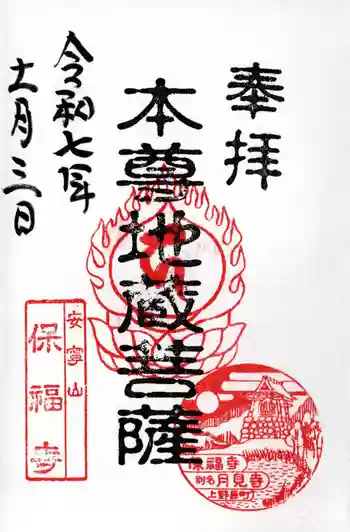 奉拝
本尊地蔵菩薩
令和七年
十一月三日
安寧山
保福寺
保福寺
別名月見寺
上野原町